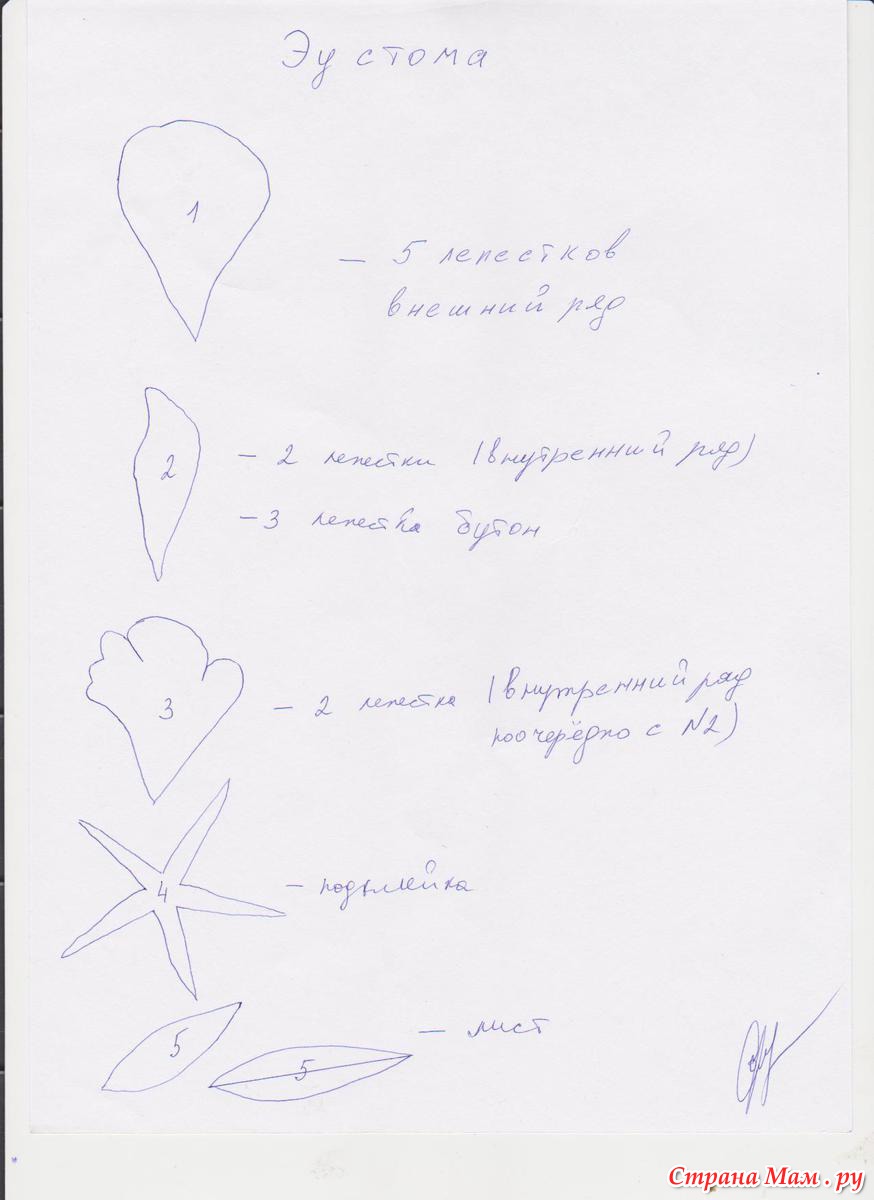 Эустома
1
– 5 лепестков
внешний ряд
2
– 2 лепестки (внутренний ряд)
– 3 лепестка бутон
3
– 2 лепестка (внутренний ряд
поочерёдно с N2)
4
– подклейка
5
5
– лист
Страна Мам.ру